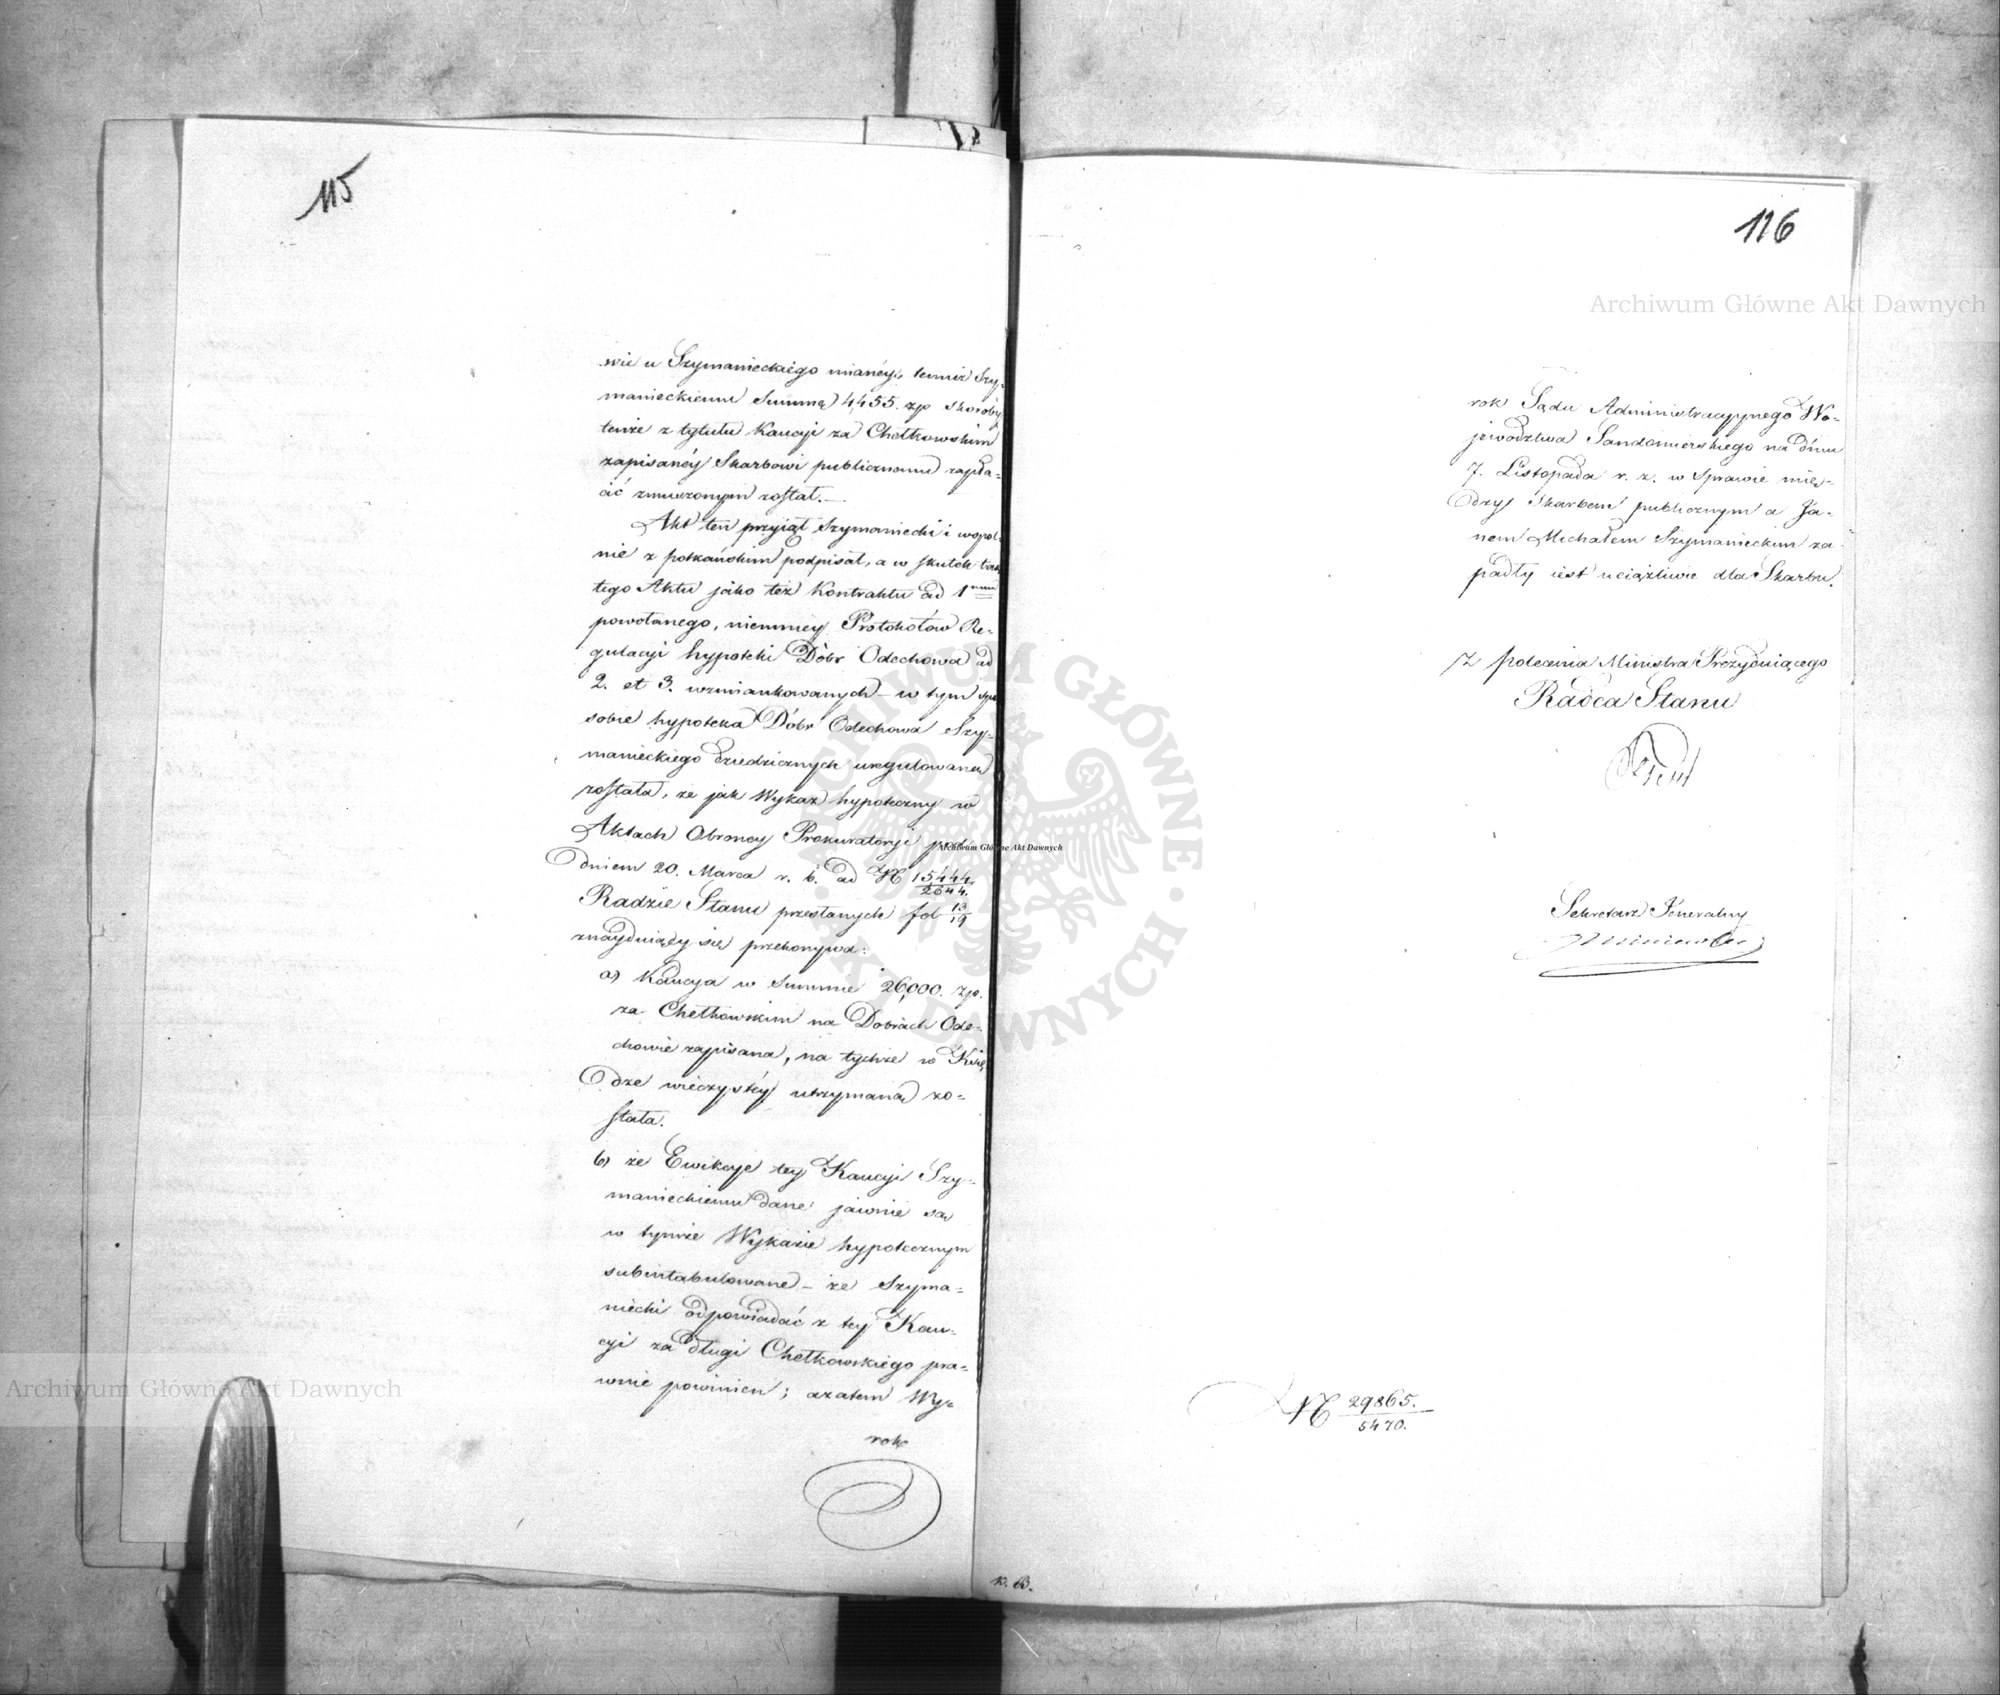 115
wie u Szymanieckiego mianéy, temuż Szy-
manieckiemu Summę 4,455. zp skoroby
tenże z tytułu Kaucyi za Chełkowskim
zapisanéy Skarbowi publicznemu zapła-
cić zmuszonym został.—
Akt ten przyiął Szymaniecki i wspól-
nie z podpisał, a w skutek tak
tego Aktu jako też Kontraktu ad 1mum
powołanego, niemniey Protokołów Re-
gulacyi hypoteki Dóbr Odechowa ad
2. et 3. wzmiankowanych – w tym spo
sobie hypoteka Dóbr Odechowa Szy-
manieckiego dziedzicznych uregulowaną
została, że jak Wykaz hypoteczny w
Aktach Obrończy Prokuratoryi pod
dniem 20. Marca r. b. ad N 15444/2644.
Radzie Stanu przesłanych fol 13/19
znayduiący się przekonywa:
a) Kaucya w Summie 26,000. zp.
za Chełkowskim na Dobrach Ode-
chowie zapisana, na tychże w Xię
dze wieczystéy utrzymaną zo-
stała.
b) że Ewikcye tey Kaucyi Szy-
manieckiemu dane jawnie są
w tymże Wykazie hypotecznym
subintabulowane – że Szyma-
niecki odpowiadać z tey Kau-
cyi za długi Chełkowskiego pra-
wnie powinien; azatem Wy-
rok
116
rok Sądu Administracyjnego Wo-
jewództwa Sandomierskiego na dniu
7. Listopada r. z. w Sprawie mię-
dzy Skarbem publicznym a Ja-
nem Michałem Szymanieckim za-
padły iest uciążliwie dla Skarbu.
Z polecenia Ministra Prezyduiącego
Radca Stanu
Sekretarz Jeneralny
N 29865./5470.
K. B.
Archiwum Główne Akt Dawnych
Archiwum Główne Akt Dawnych
Archiwum Główne Akt Dawnych
ARCHIWUM GŁÓWNE AKT DAWNYCH